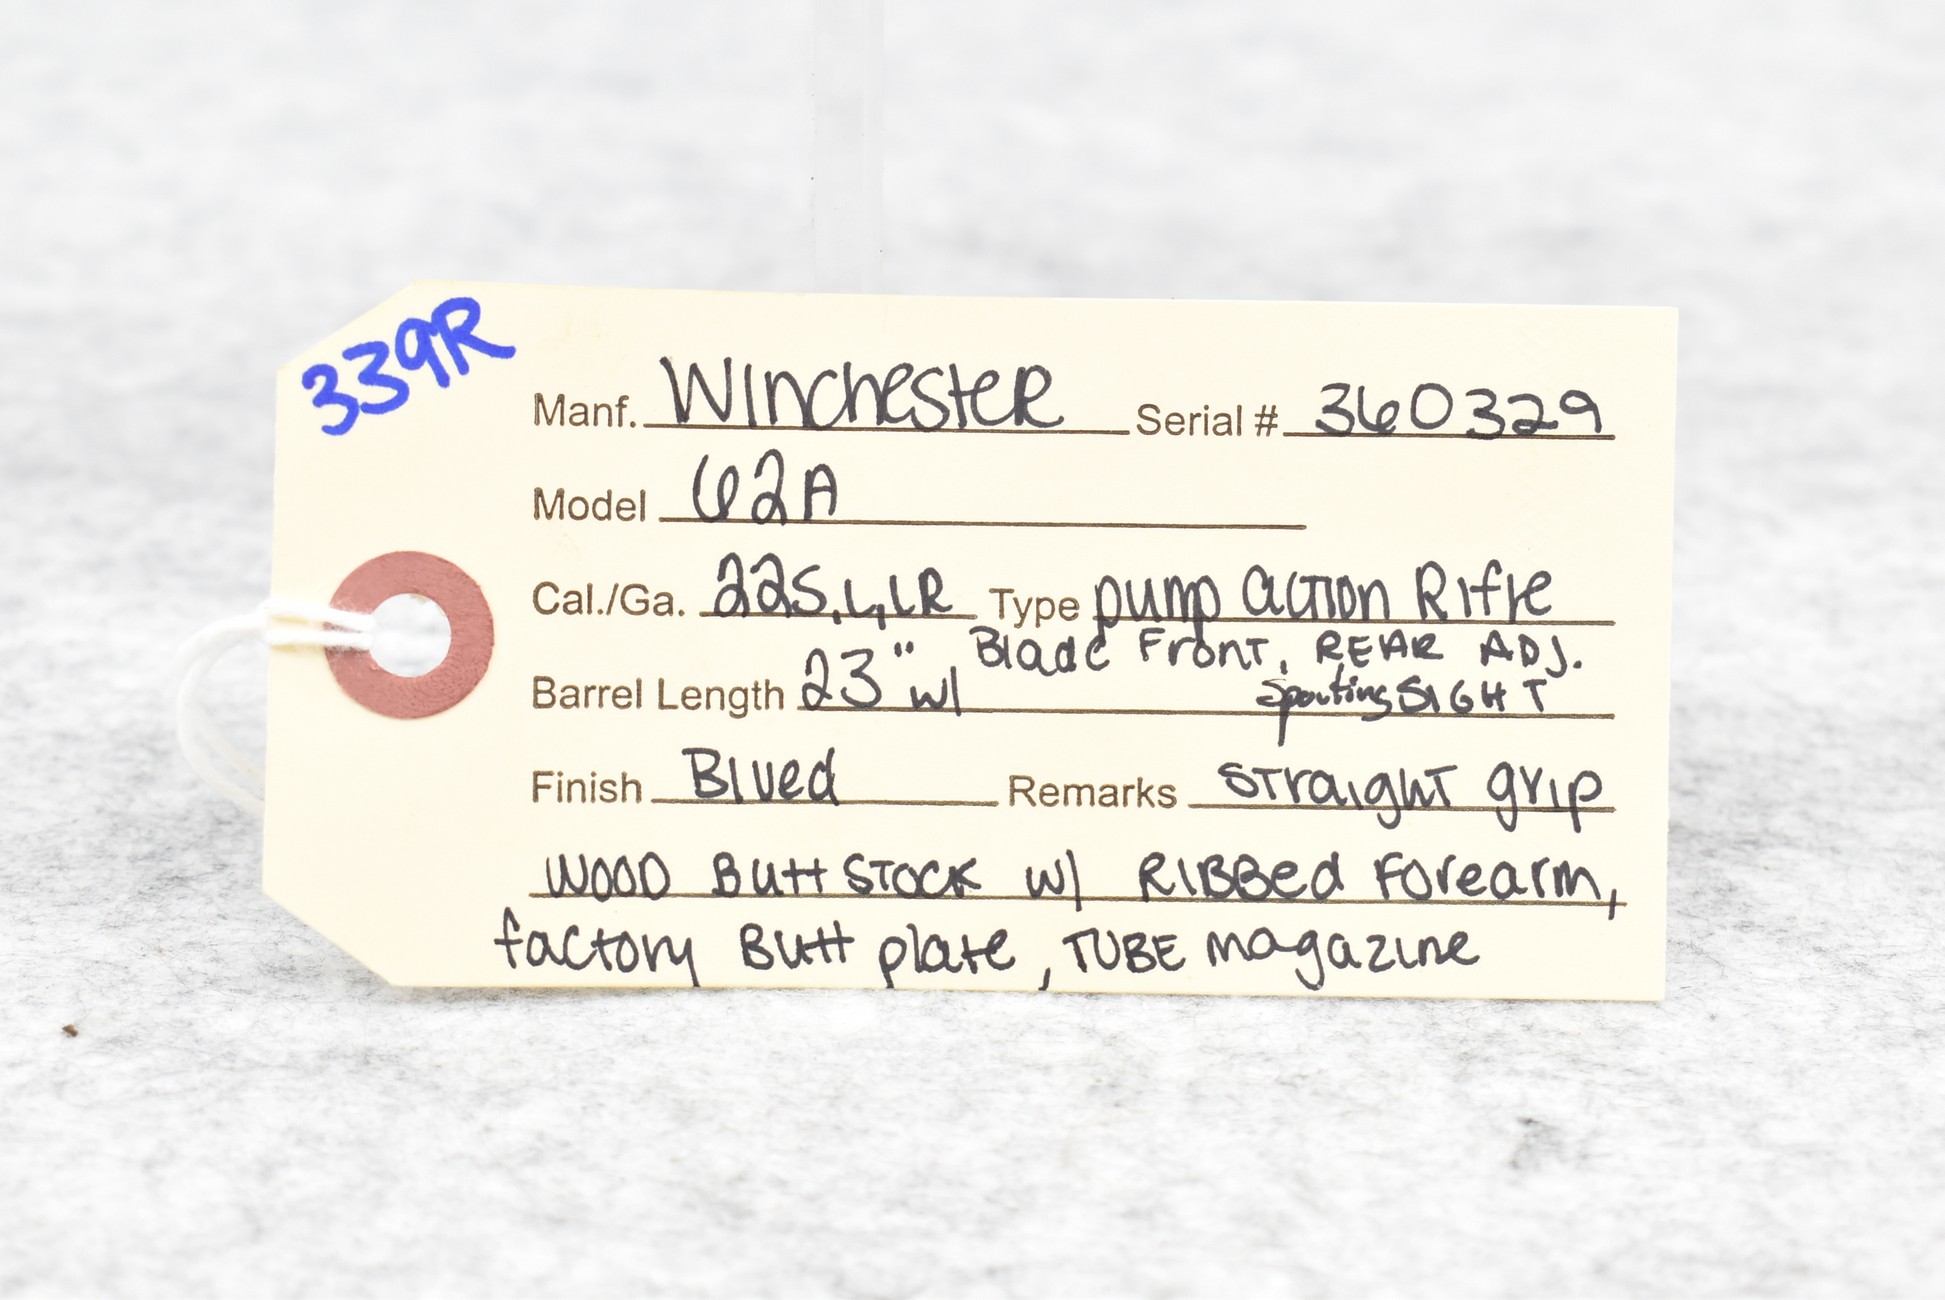 339R
Manf. Winchester Serial # 360329
Model 62A
Cal./Ga. 22S, L, LR Type pump action Rifle
Blade Front, REAR ADJ.
Barrel Length 23" w/ Sporting SIGHT
Finish Blued Remarks straight grip
WOOD Butt STOCK w/ RIBBed Forearm,
factory Butt plate, TUBE magazine